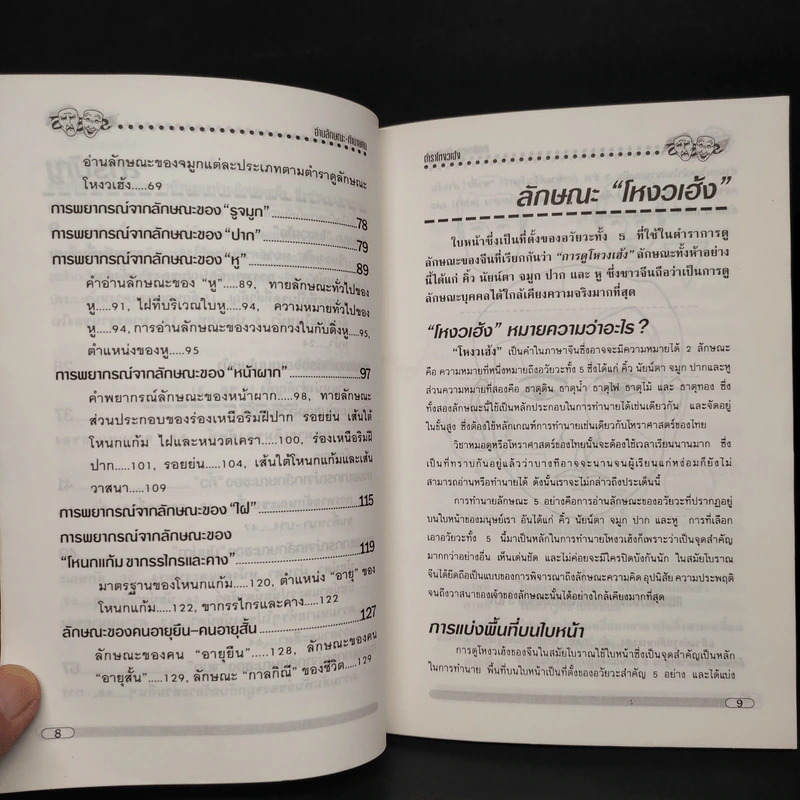 อ่านลักษณะ-ทำนายคน
อ่านลักษณะของจมูกแต่ละประเภทตามตำราดูลักษณะ
โหงวเฮ้ง.....69
การพยากรณ์จากลักษณะของ “รูจมูก”........................78
การพยากรณ์จากลักษณะของ “ปาก”........................79
การพยากรณ์จากลักษณะของ “หู”........................89
คำอ่านลักษณะของ “หู”.....89, ทายลักษณะทั่วไปของ
หู.....91, ไฝที่บริเวณใบหู.....94, ความหมายทั่วไปของ
หู.....94, การอ่านลักษณะของวงนอกวงในกับติ่งหู.....95,
ตำแหน่งของหู.....95
การพยากรณ์จากลักษณะของ “หน้าผาก”........................97
คำพยากรณ์ลักษณะของหน้าผาก.....98, ทายลักษณะ
ส่วนประกอบของร่องเหนือริมฝีปาก รอยย่น เส้นใต้
โหนกแก้ม ไฝและหนวดเครา.....100, ร่องเหนือริมฝี
ปาก.....101, รอยย่น.....104, เส้นใต้โหนกแก้มและเส้น
วาสนา.....109
การพยากรณ์จากลักษณะของ “ไฝ”........................115
การพยากรณ์จากลักษณะของ
“โหนกแก้ม ขากรรไกรและคาง”........................119
มาตรฐานของโหนกแก้ม.....120, ตำแหน่ง “อายุ” ของ
โหนกแก้ม.....122, ขากรรไกรและคาง.....122
ลักษณะของคนอายุยืน-คนอายุสั้น........................127
ลักษณะของคน “อายุยืน”.....128, ลักษณะของคน
“อายุสั้น”.....129, ลักษณะ “กาลกิณี” ของชีวิต.....129
8
ตำราโหงวเฮ้ง
ลักษณะ “โหงวเฮ้ง”
ใบหน้าซึ่งเป็นที่ตั้งของอวัยวะทั้ง 5 ที่ใช้ในตำราการดู
ลักษณะของจีนที่เรียกกันว่า “การดูโหงวเฮ้ง” ลักษณะทั้งห้าอย่าง
นี้ได้แก่ คิ้ว นัยน์ตา จมูก ปาก และ หู ซึ่งชาวจีนถือว่าเป็นการดู
ลักษณะบุคคลได้ใกล้เคียงความจริงมากที่สุด
“โหงวเฮ้ง” หมายความว่าอะไร ?
“โหงวเฮ้ง” เป็นคำในภาษาจีนซึ่งอาจจะมีความหมายได้ 2 ลักษณะ
คือ ความหมายที่หนึ่งหมายถึงอวัยวะทั้ง 5 ซึ่งได้แก่ คิ้ว นัยน์ตา จมูก ปากและหู
ส่วนความหมายที่สองคือ ธาตุดิน ธาตุน้ำ ธาตุไฟ ธาตุไม้ และ ธาตุทอง ซึ่ง
ทั้งสองลักษณะนี้ใช้เป็นหลักประกอบในการทำนายได้เช่นเดียวกัน และจัดอยู่
ในขั้นสูง ซึ่งต้องใช้หลักเกณฑ์การทำนายเช่นเดียวกับโหราศาสตร์ของไทย
วิชาหมอดูหรือโหราศาสตร์ของไทยนั้นจะต้องใช้เวลาเรียนนานมาก ซึ่ง
เป็นที่ทราบกันอยู่แล้วว่าบางทีอาจจะนานจนผู้เรียนแก่หง่อมก็ยังไม่
สามารถอ่านหรือทำนายได้ ดังนั้นเราจะไม่กล่าวถึงประเด็นนี้
การทำนายลักษณะ 5 อย่างคือการอ่านลักษณะของอวัยวะที่ปรากฏอยู่
บนใบหน้าของมนุษย์เรา อันได้แก่ คิ้ว นัยน์ตา จมูก ปาก และหู การที่เลือก
เอาอวัยวะทั้ง 5 นี้มาเป็นหลักในการทำนายโหงวเฮ้งก็เพราะว่าเป็นจุดสำคัญ
มากกว่าอย่างอื่น เห็นเด่นชัด และไม่ค่อยจะมีใครปิดบังกันนัก ในสมัยโบราณ
จีนได้ยึดถือเป็นแบบของการพิจารณาถึงลักษณะความคิด อุปนิสัย ความประพฤติ
จนถึงวาสนาของเจ้าของลักษณะนั้นได้อย่างใกล้เคียงมากที่สุด
การแบ่งพื้นที่บนใบหน้า
การดูโหงวเฮ้งของจีนในสมัยโบราณใช้ใบหน้าซึ่งเป็นจุดสำคัญเป็นหลัก
ในการทำนาย พื้นที่บนใบหน้าเป็นที่ตั้งของอวัยวะสำคัญ 5 อย่าง และได้แบ่ง
9